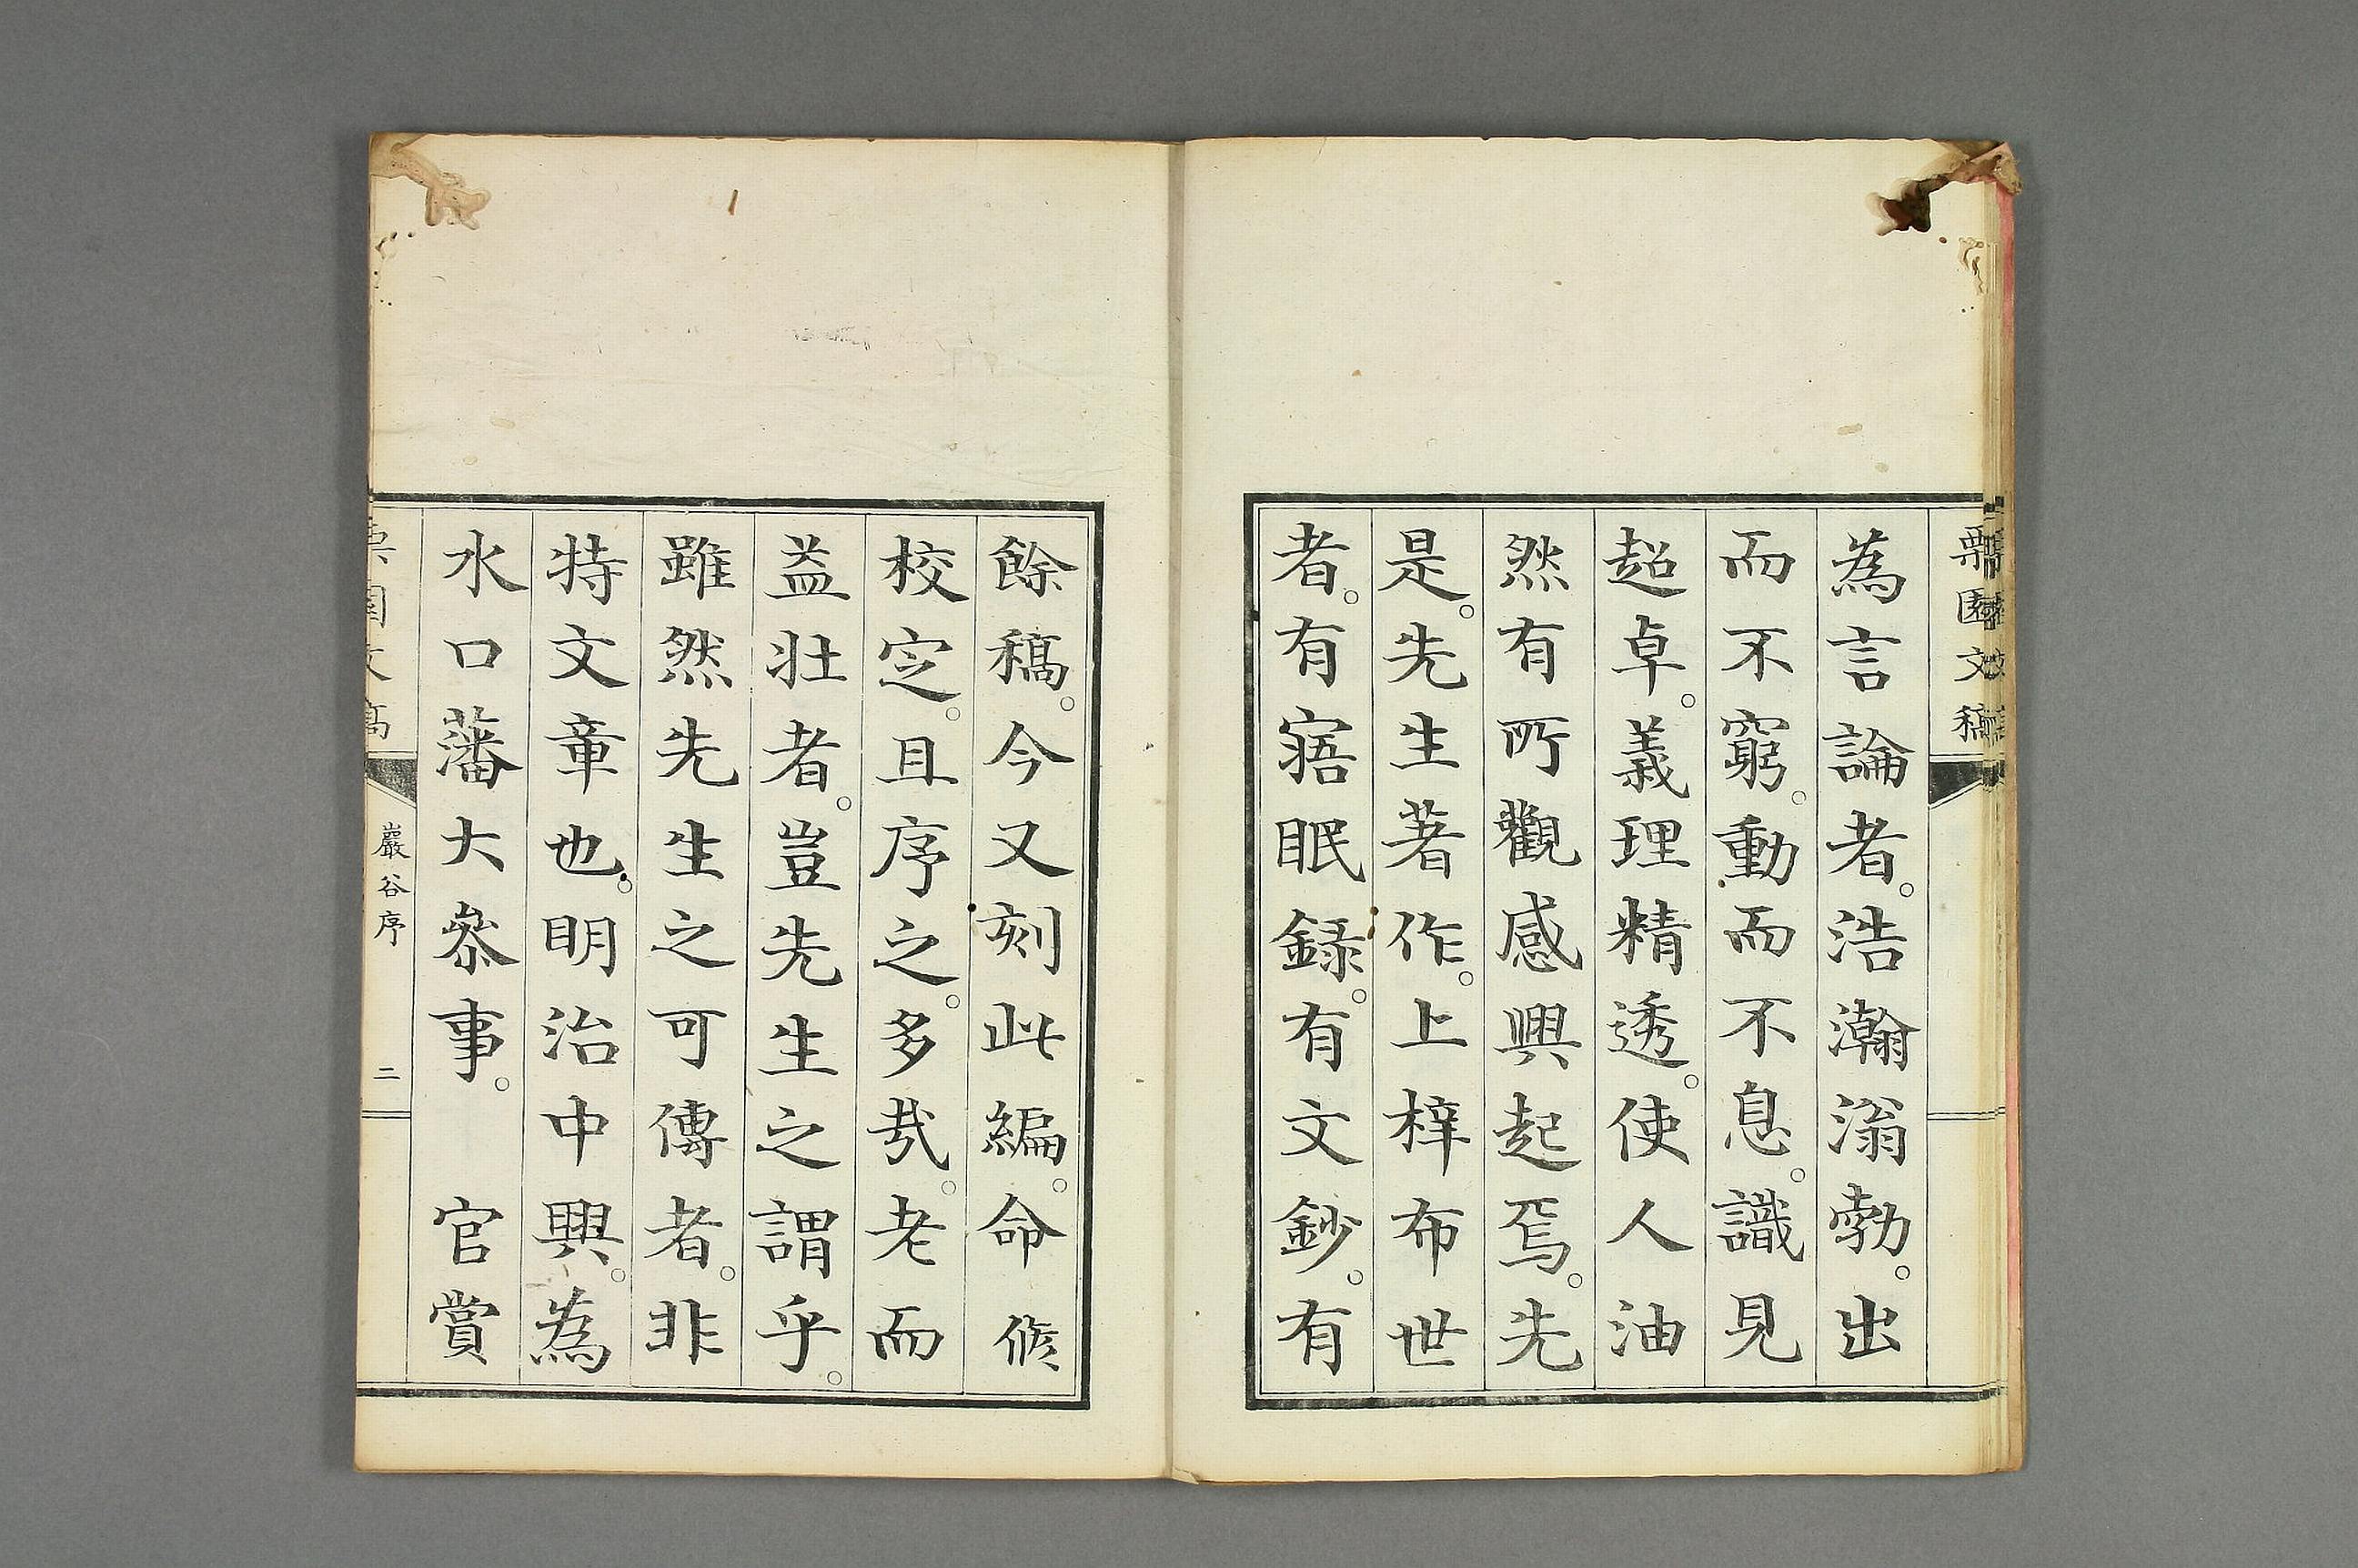 栗園文稿
為言論者。浩瀚滃勃。出
而不窮。動而不息。識見
超卓。義理精透。使人油
然有所觀感興起焉。先
是。先生著作。上梓布世
者。有寤眠録。有文鈔。有
餘稿。今又刻此編。命脩
校定。且序之。多哉。老而
益壯者。豈先生之謂乎。
雖然先生之可傳者。非
特文章也。明治中興。為
水口藩大參事。官賞
栗園文稿
巖谷序
二